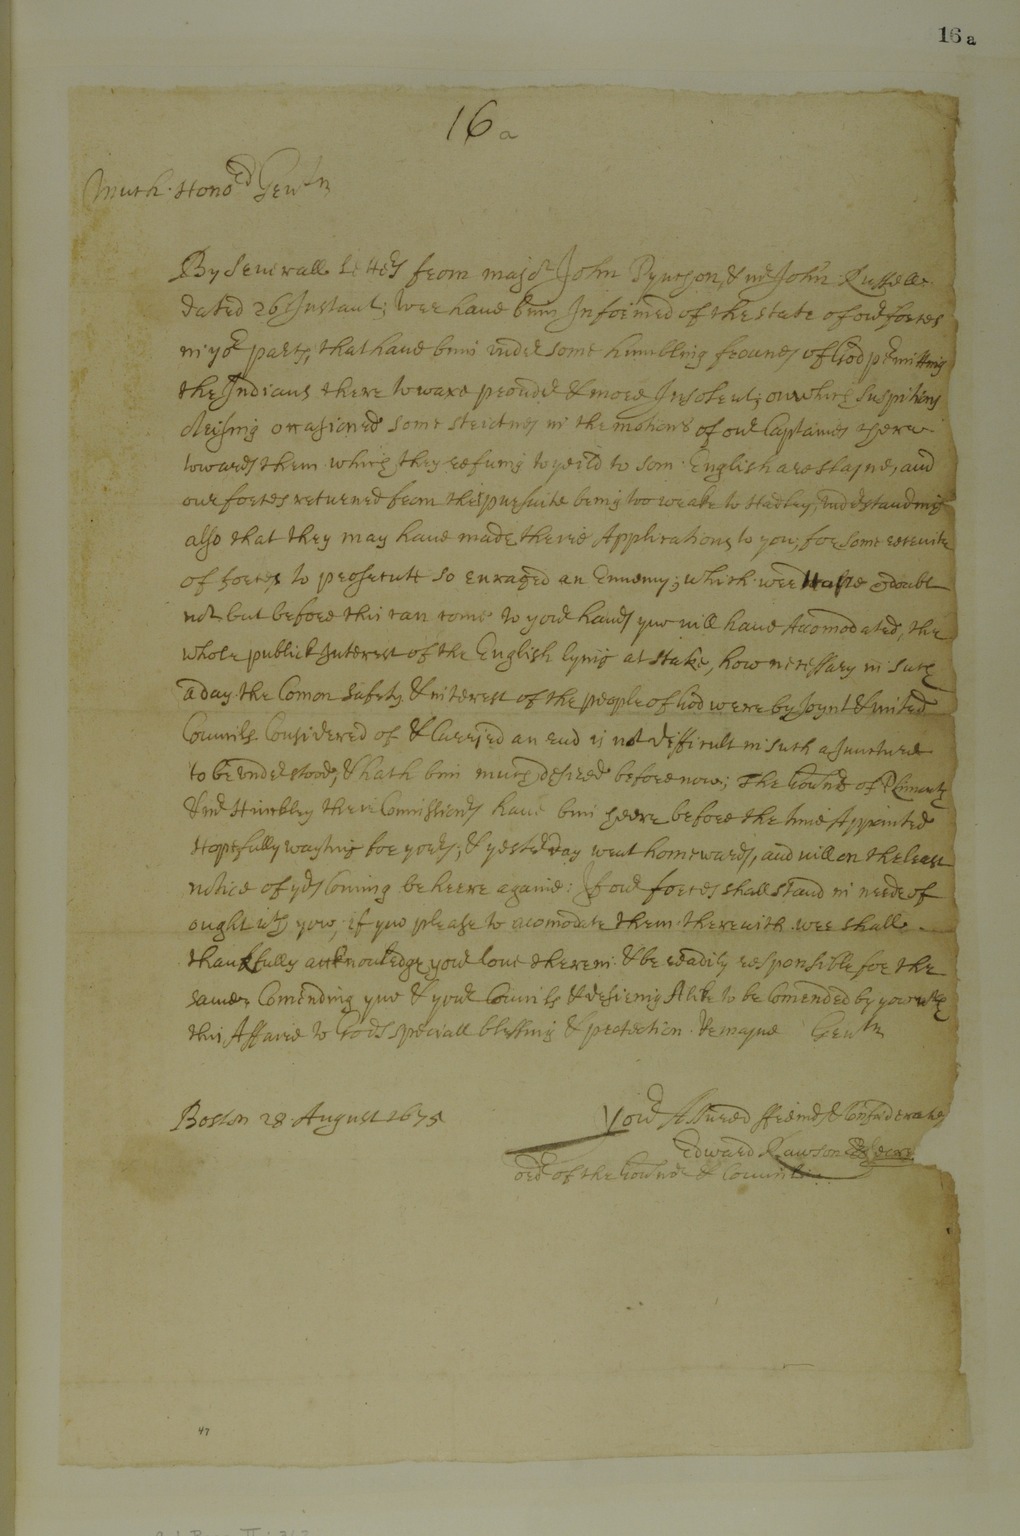 16 a
16 a
Much Honord Gentn
By Severall Letters from major John Pynchon, & mr John Russell
dated 26 Instant; Wee have bin Informed of the state of our forces
in yor parts, that have bin under some humbling frounes of God pmitting
the Indians there to waxe prouder & more Insolent; on which suspitions
Arising occasioned some strictnes in the motions of our Captaines there
towards them which they refusing to yeild to som English are slayne, and
our forces returned from their pursuite being too weake to Hadley, understanding
also that they may have made their Applications to you, for some recruite
of forces to prosecute so enraged an Ennemy; which wee doubt
not but before this can come to your hands you will have Accomodated, the
whole publick Interest of the English lying at stake, how necessary in such
a day the Comon safety & interest of the people of God were by Joynt & united
Councils Considered of & Carried an end is not difficult in such a Juncture
to be understood, & hath bin much desired before now; The Gounor of Plimouth
& mr Hinckley their Comissioners have bin heere before the time Appointed
Hopefully wayting for yors, & yesterday went homewards, and will on the least
notice of yors Coming be heere againe: If our forces shall stand in neede of
ought wth you, if you please to acomodate them therewith wee shall
thankfully acknowledge your love therein & be readily responsible for the
same Comending you & your Councils & desiering Alike to be Comended by you wth
this Affaire to Gods speciall blessing & protection Remayne Gentn
Boston 28 August 1675
Your Assured ffreinds & Confoederates
Edward Rawson Secre
ordr of the Gounor & Councill
47